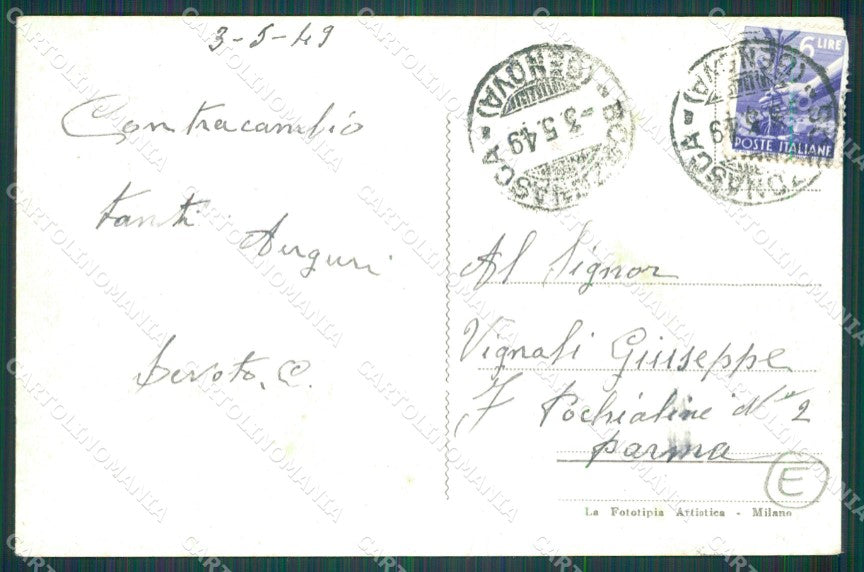 3-5-49
Contracambio
tanti Auguri
Devoto, C.
BORZONASCA
(GENOVA)
-3.5.49
BORZONASCA
(GENOVA)
6 LIRE
POSTE ITALIANE
Al Signor
Vignali Giuseppe
Pochialine N° 2
Parma
E
La Fototipia Artistica - Milano
CARTOLINOMANIA